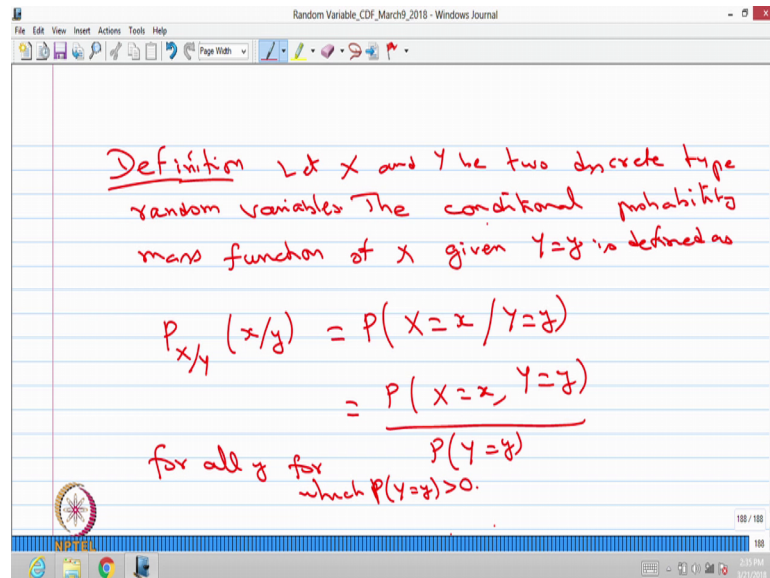 Random Variable_CDF_March9_2018 - Windows Journal
File Edit View Insert Actions Tools Help
Page Width
Definition Let X and Y be two discrete type
random variables. The conditional probability
mass function of X given Y=y is defined as
P_{X/Y} (x/y) = P( X=x / Y=y)
= P( X=x, Y=y)
P(Y=y)
for all y for
which P(Y=y)>0.
NPTEL
188 / 188
188
2:35 PM
5/21/2018